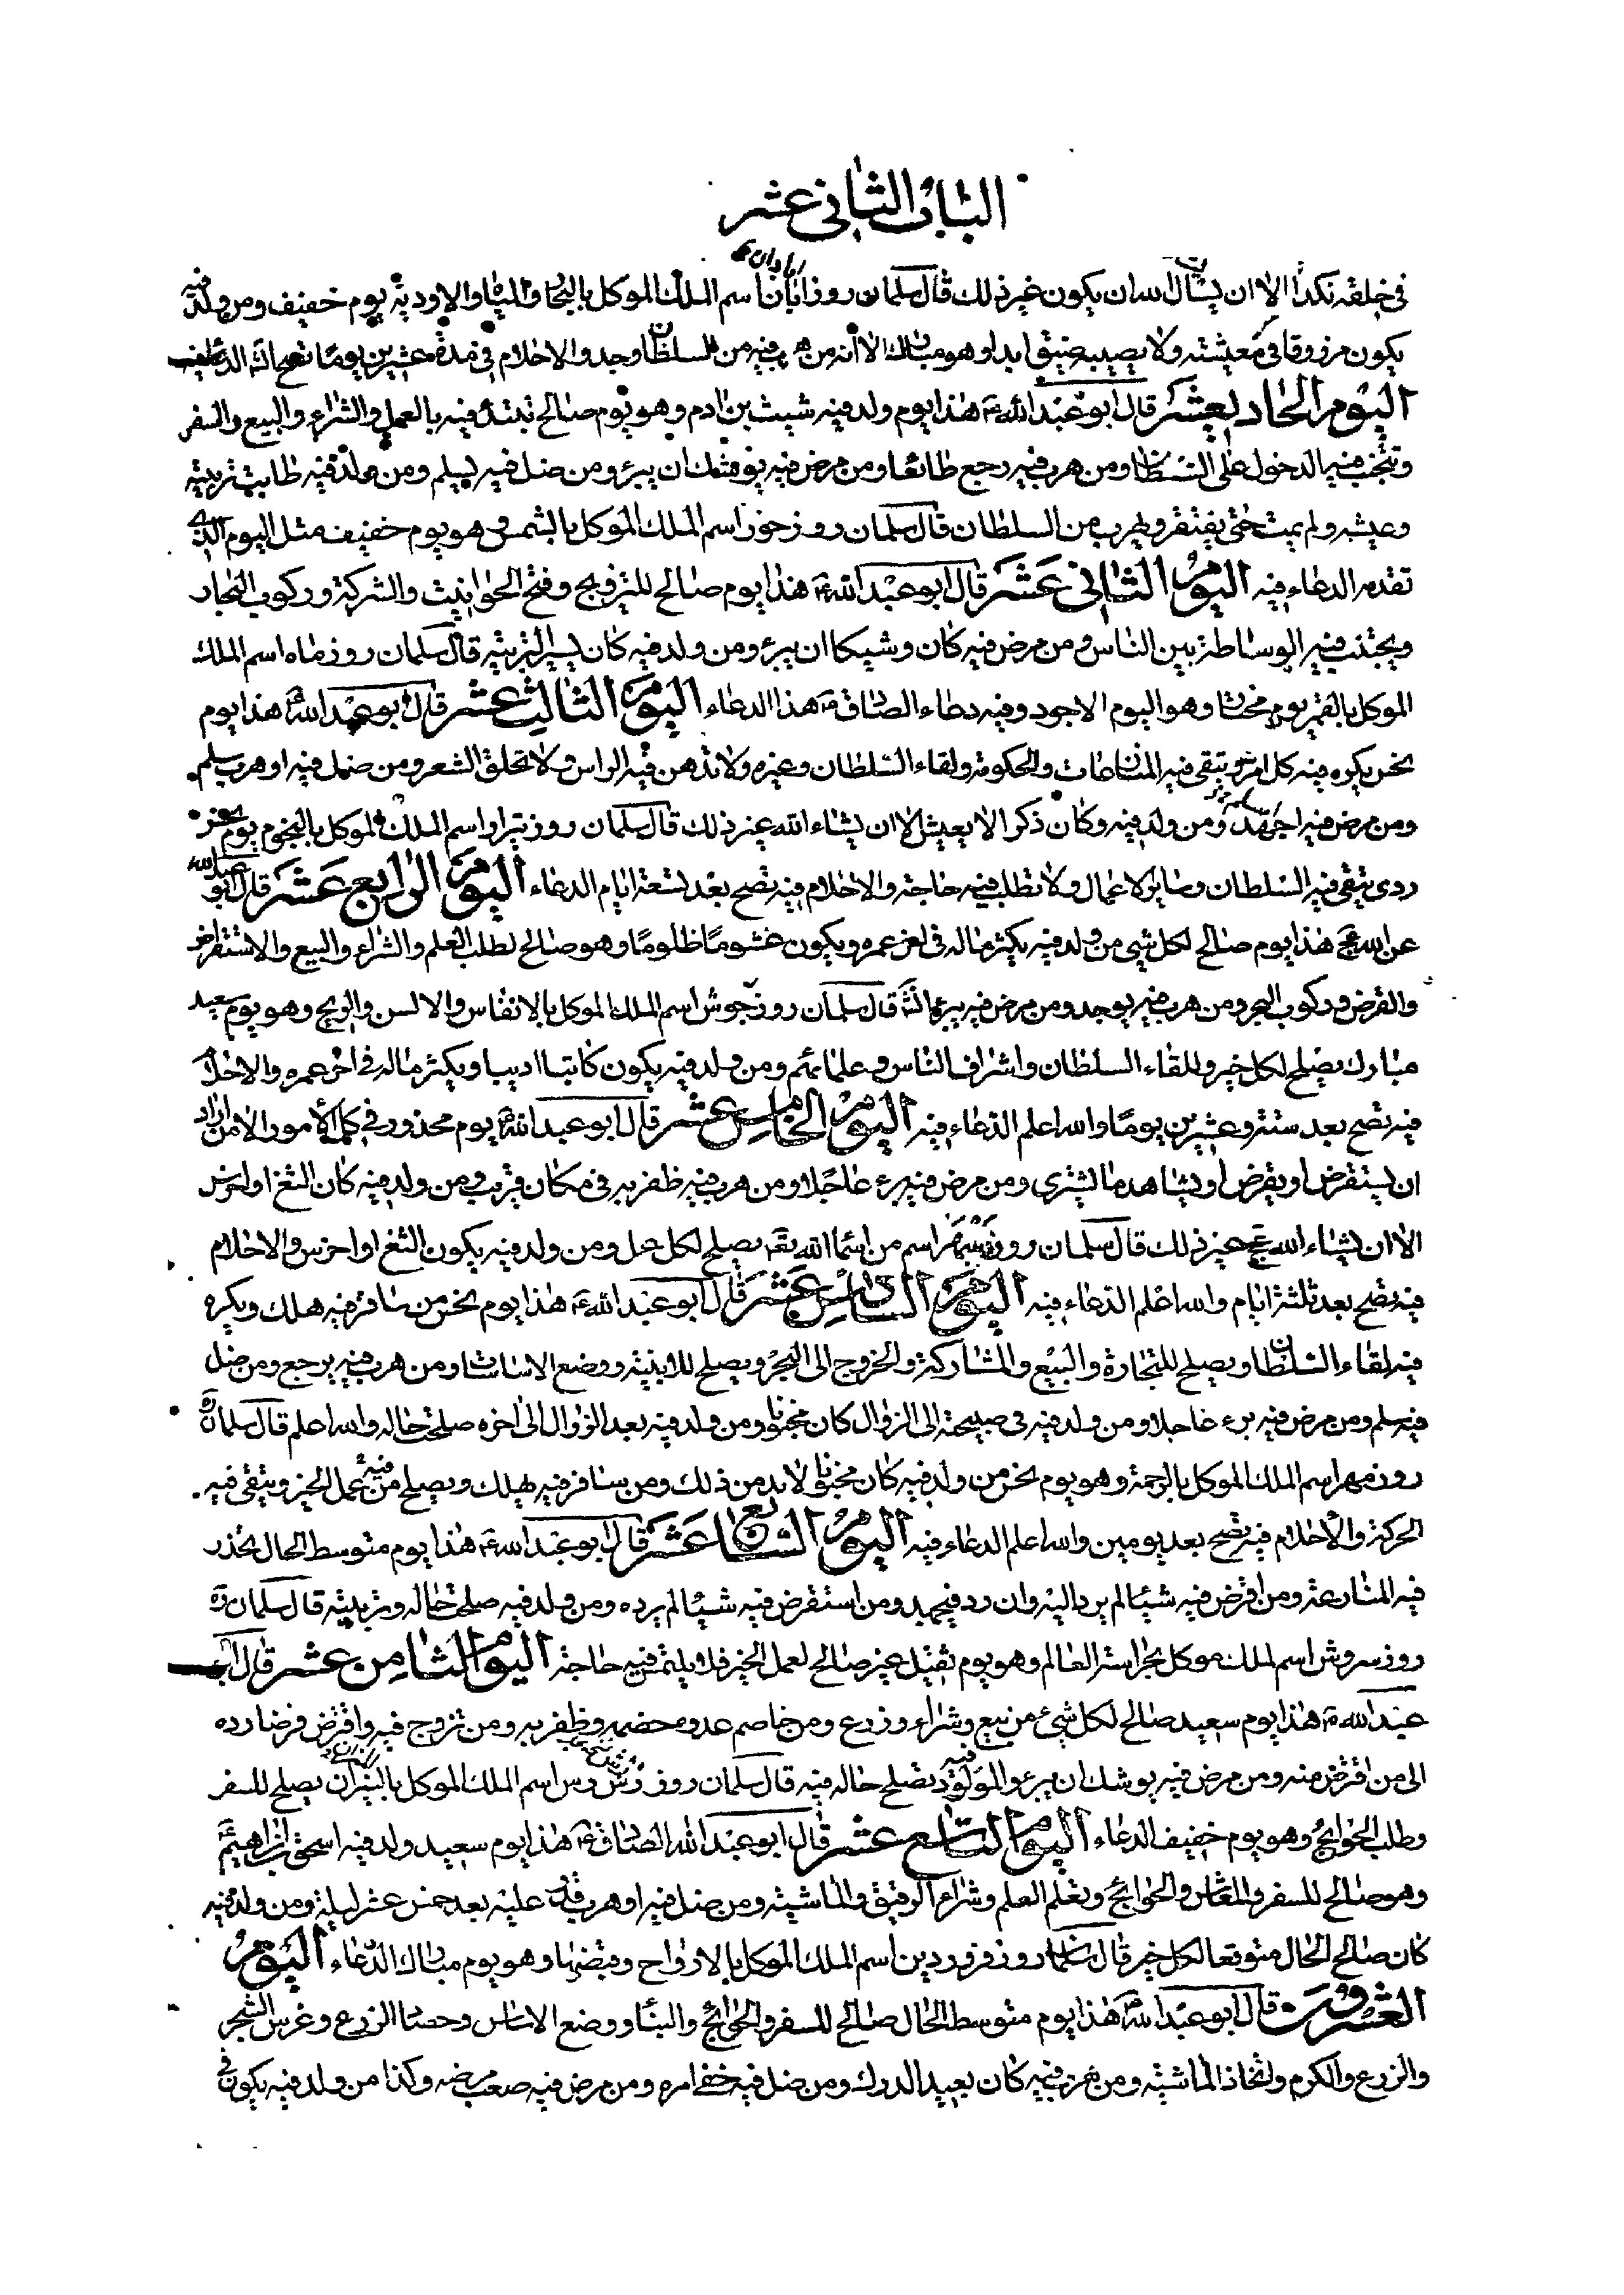 الباب الثاني عشر
في خلقه نكدا الا ان يشاء الله ان يكون غير ذلك قال سلمان روز ابان اسم الملك الموكل بالبحار والمياه والاودية يوم خفيف ومن ولد فيه
يكون مرزوقا في معيشته ولا يصيبه ضيق ابدا وهو مبارك الا انه من هرب فيه من السلطان وجد والاحلام في مدة عشرين يوما تصح
اليوم الحادي عشر قال ابو عبد الله ع هذا يوم ولد فيه شيث بن ادم وهو يوم صالح تبتدئ فيه بالعمل والشراء والبيع والسفر
وتجتنب فيه الدخول على السلطان ومن هرب فيه رجع طائعا ومن مرض فيه يوشك ان يبرء ومن ضل فيه يسلم ومن ولد فيه طابت تربيته
وعيشه ولم يمت حتى يفتقر ويهرب من السلطان قال سلمان روز خور اسم الملك الموكل بالشمس وهو يوم خفيف مثل اليوم الذي
تقدم الدعاء فيه اليوم الثاني عشر قال ابو عبد الله ع هذا يوم صالح للتزويج وفتح الحوانيت والشركة وركوب البحار
ويجتنب فيه الوساطة بين الناس ومن مرض فيه كان وشيكا ان يبرء ومن ولد فيه كان يسير التربية قال سلمان روز ماه اسم الملك
الموكل بالقمر يوم مختار وهو اليوم الاجود وفيه دعاء الصادق ع هذا الدعاء اليوم الثالث عشر قال ابو عبد الله ع هذا يوم
نحس يكره فيه كل امر ويتقى فيه المنازعات والحكومة ولقاء السلطان وغيره ولا تدهن فيه الراس ولا تحلق الشعر ومن ضل فيه او هرب سلم
ومن مرض فيه اجهد ومن ولد فيه وكان ذكرا لا يعيش الا ان يشاء الله غير ذلك قال سلمان روز تير اسم الملك الموكل بالنجوم يوم نحس
ردي يتقى فيه السلطان وسائر الاعمال ولا تطلب فيه حاجة والاحلام فيه تصح بعد تسعة ايام الدعاء اليوم الرابع عشر قال ابو عبد الله
ع هذا يوم صالح لكل شي من ولد فيه يكثر ماله في اخر عمره ويكون غشوما ظلوما وهو صالح لطلب العلم والشراء والبيع والاستقراض
والقرض وركوب البحر ومن هرب فيه يوجد ومن مرض فيه يبرء انشاء الله قال سلمان روز جوش اسم الملك الموكل بالانفاس والالسن والريح وهو يوم سعيد
مبارك يصلح لكل خير وللقاء السلطان واشراف الناس وعلمائهم ومن ولد فيه يكون كاتبا اديبا ويكثر ماله في اخر عمره والاحلام
فيه تصح بعد ستة وعشرين يوما والله اعلم الدعاء فيه اليوم الخامس عشر قال ابو عبد الله ع يوم محذور في كل الامور الا من اراد
ان يستقرض او يقرض او يشاهد ما يشتري ومن مرض فيه برء عاجلا ومن هرب فيه ظفر به في مكان قريب ومن ولد فيه كان الثغ او اخرس
الا ان يشاء الله عج غير ذلك قال سلمان روز ديبمهر اسم من اسماء الله تعالى يصلح لكل عمل ومن ولد فيه يكون الثغ او اخرس والاحلام
فيه تصح بعد ثلثة ايام والله اعلم الدعاء فيه اليوم السادس عشر قال ابو عبد الله ع هذا يوم نحس من سافر فيه هلك ويكره
فيه لقاء السلطان ويصلح للتجارة والبيع والمشاركة والخروج الى البحر ويصلح للابنية ووضع الاساسات ومن هرب فيه يرجع ومن ضل
فيه سلم ومن مرض فيه برء عاجلا ومن ولد فيه في صبيحته الى الزوال كان مجنونا ومن ولد فيه بعد الزوال الى اخره صلحت حاله والله اعلم قال سلمان ره
روز مهر اسم الملك الموكل بالرحمة وهو يوم نحس من ولد فيه كان مجنونا لا بد من ذلك ومن سافر فيه يهلك ويصلح فيه من عمل الخير ويتقى فيه
الحركة والاحلام فيه تصح بعد يومين والله اعلم الدعاء فيه اليوم السابع عشر قال ابو عبد الله ع هذا يوم متوسط الحال يحذر
فيه المنازعة ومن اقرض فيه شيئا لم يرد اليه وان رد فيجهد ومن استقرض فيه شيئا لم يرده ومن ولد فيه صلحت حاله وتربيته قال سلمان ره
روز سروش اسم الملك موكل بحراسة العالم وهو يوم ثقيل غير صالح لعمل الخير فلا يلتمس فيه حاجة اليوم الثامن عشر قال ابو
عبد الله ع هذا يوم سعيد صالح لكل شيء من بيع وشراء وزرع ومن خاصم عدوه خصمه وظفر به ومن تزوج فيه واقترض قرضا رده
الى من اقترض منه ومن مرض فيه يوشك ان يبرء والمولود فيه تصلح حاله فيه قال سلمان روز رش اسم الملك الموكل بالنيران يصلح للسفر
وطلب الحوايج وهو يوم خفيف الدعاء اليوم التاسع عشر قال ابو عبد الله الصادق ع هذا يوم سعيد ولد فيه اسحق بن ابراهيم ع
وهو صالح للسفر والمعاش والحوائج وتعلم العلم وشراء الرقيق والماشية ومن ضل فيه او هرب قدر عليه بعد خمس عشر ليلة ومن ولد فيه
كان صالح الحال متوقعا لكل خير قال سلمان روز فروردين اسم الملك الموكل بالارواح وقبضها وهو يوم مبارك الدعاء اليوم
العشرون قال ابو عبد الله ع هذا يوم متوسط الحال صالح للسفر والحوائج والبناء ووضع الاساس وحصاد الزرع وغرس الشجر
والزرع والكرم واتخاذ الماشية ومن هرب فيه كان بعيد الدرك ومن ضل فيه خفي امره ومن مرض فيه صعب مرضه وكذا من ولد فيه يكون في